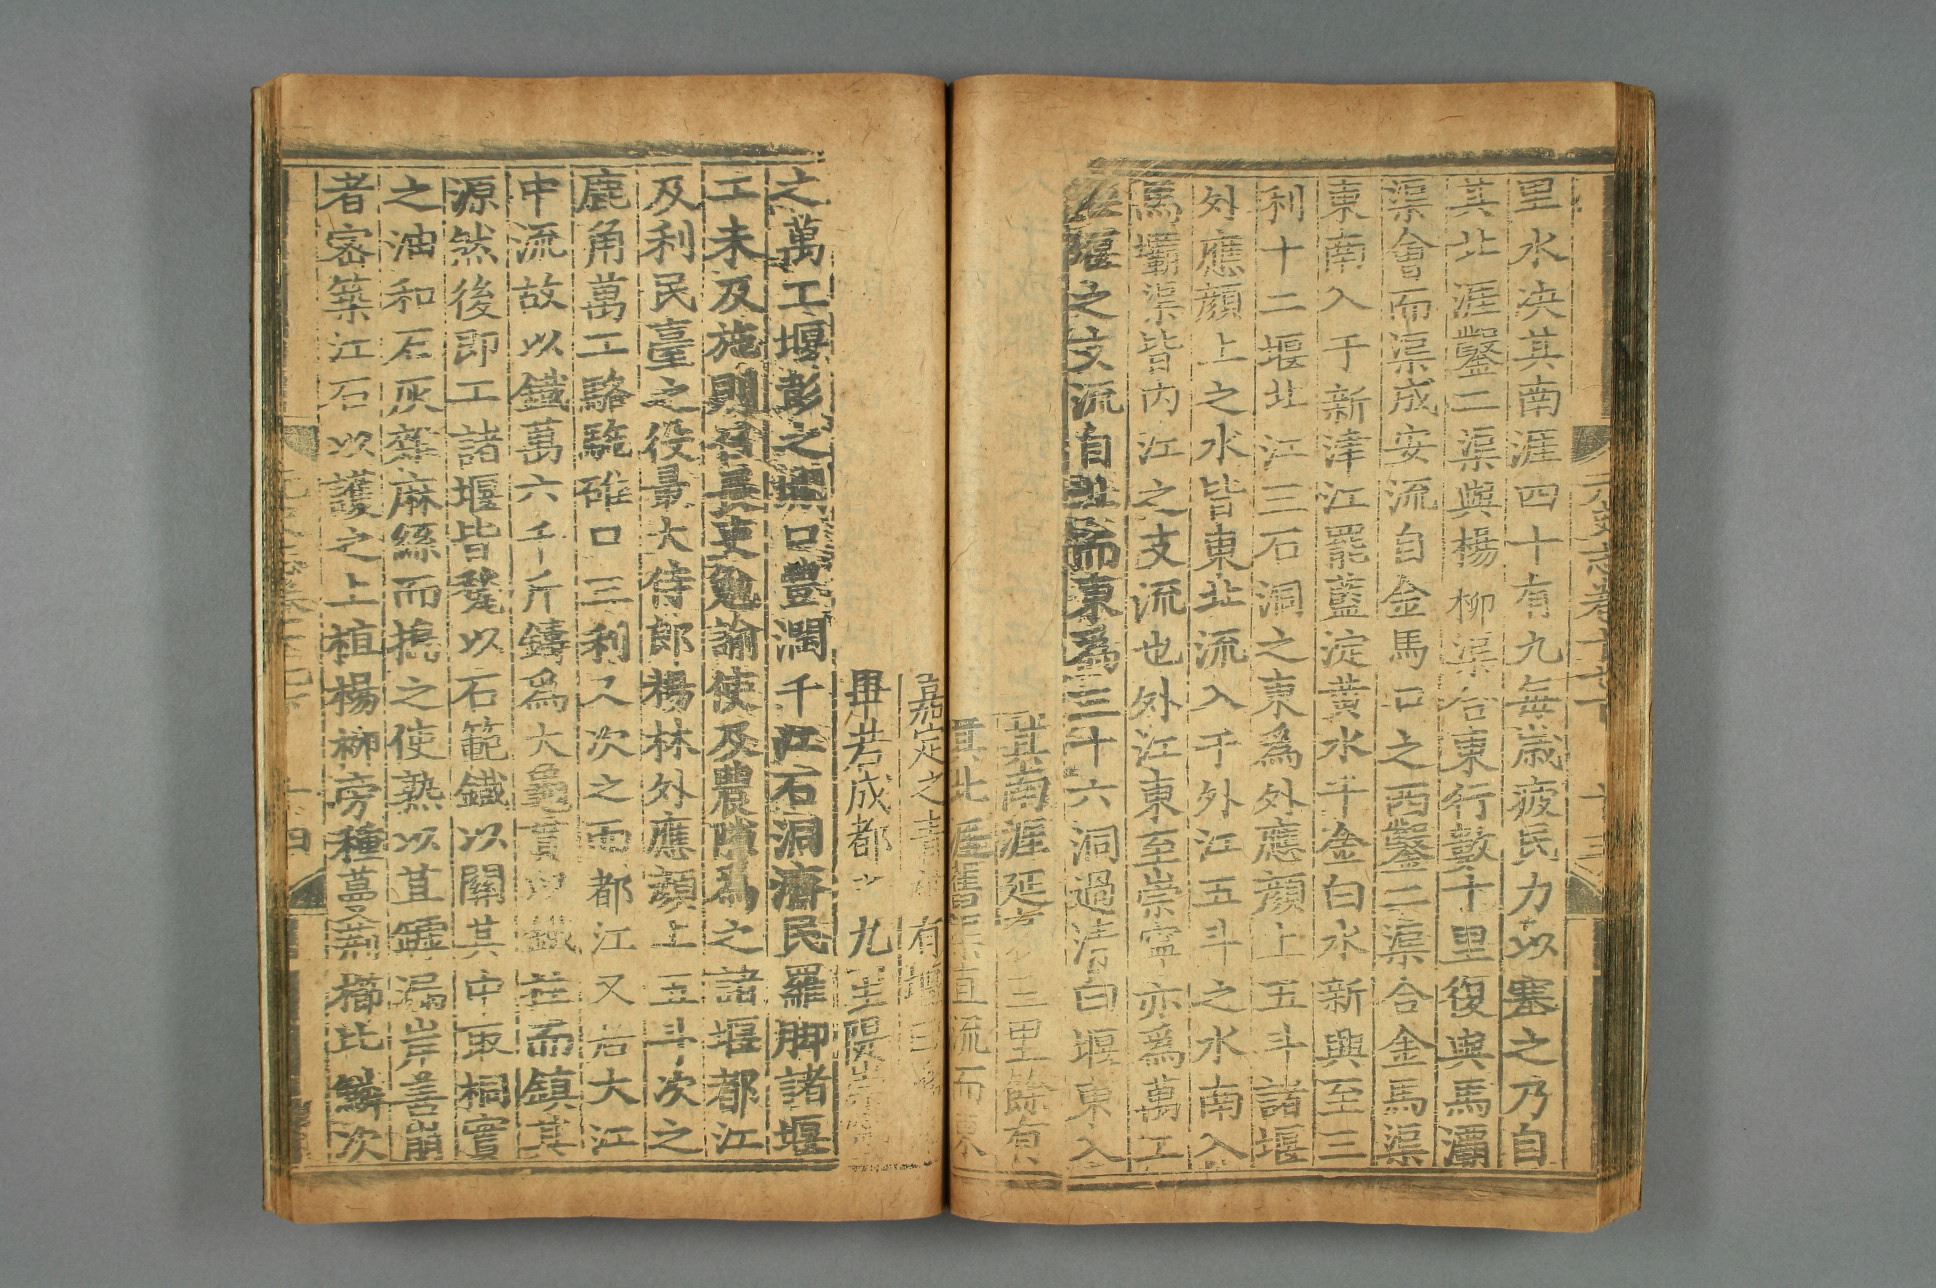 元史志卷十七下 十三
里水决其南涯四十有九每歲疲民力以塞之乃自
其北涯鑿二渠與楊柳渠合東行數十里復與馬灞
渠會而渠成安流自金馬口之西鑿二渠合金馬渠
東南入于新津江罷藍淀黄水千金白水新興至三
利十二堰北江三石洞之東爲外應顔上五斗諸堰
外應顔上之水皆東北流入于外江五斗之水南入
馬壩渠皆内江之支流也外江東至崇寧亦爲萬工
堰堰之支流自北而東爲三十六洞過清白堰東入
其南涯延袤三里餘有
其北涯舊渠直流而東
嘉定之青神有堰曰
畢若成都之九里隄崇寧
之萬工堰彭之堋口豐潤千江石洞濟民羅脚諸堰
工未及施則召長吏勉諭使及農隙爲之諸堰都江
及利民臺之役最大侍郎楊林外應顔上五斗次之
鹿角萬工駱駝碓口三利又次之而都江又居大江
中流故以鐵萬六千斤鑄爲大龜貫以鐵柱而鎮其
源然後即工諸堰皆甃以石範鐵以關其中取桐實
之油和石灰雜麻絲而擣之使熟以苴罅漏岸善崩
者密築江石以護之上植楊柳旁種蔓荊櫛比鱗次